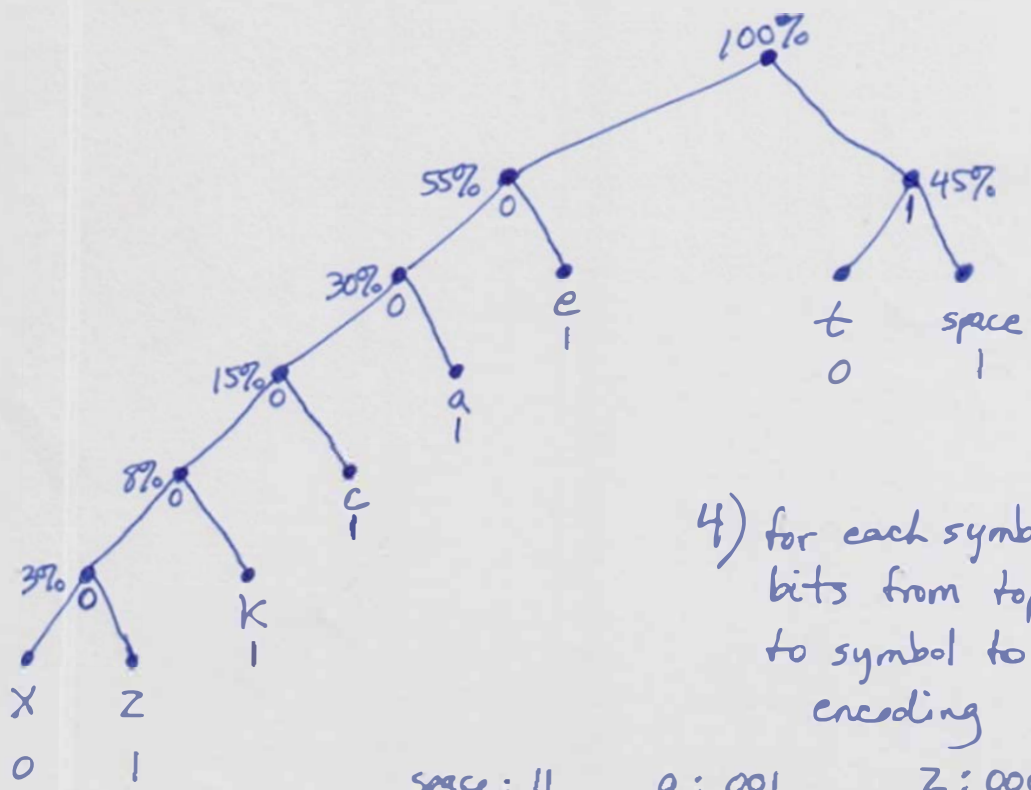 100%
55%
0
45%
1
30%
0
e
1
t
0
space
1
15%
0
a
1
8%
0
c
1
3%
0
k
1
x
0
z
1
4) for each symb
bits from top
to symbol to
encoding
space : 11 a : 001 z : 000